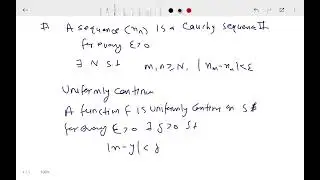 A sequence (xn) is a Cauchy sequence If
for every ε>0
∃ N s.t m,n ≥ N, |xm-xn|<ε
Uniformly Continu
A function f is Uniformly Continu on S if
for every ε>0 ∃ δ>0 s.t
|x-y|<δ